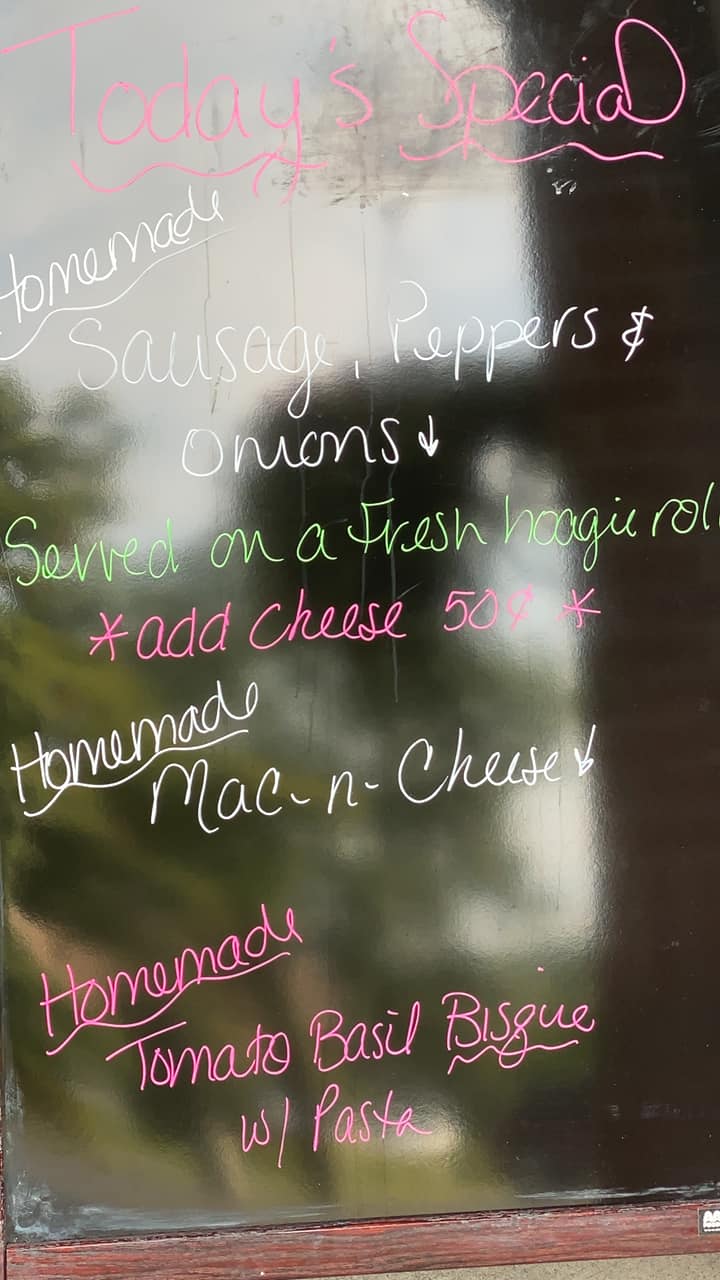 Today's Special
Homemade
Sausage, Peppers &
Onions ↓
Served on a Fresh hoagie roll
*add Cheese 50¢ *
Homemade
Mac-n-Cheese ↓
Homemade
Tomato Basil Bisque
w/ Pasta